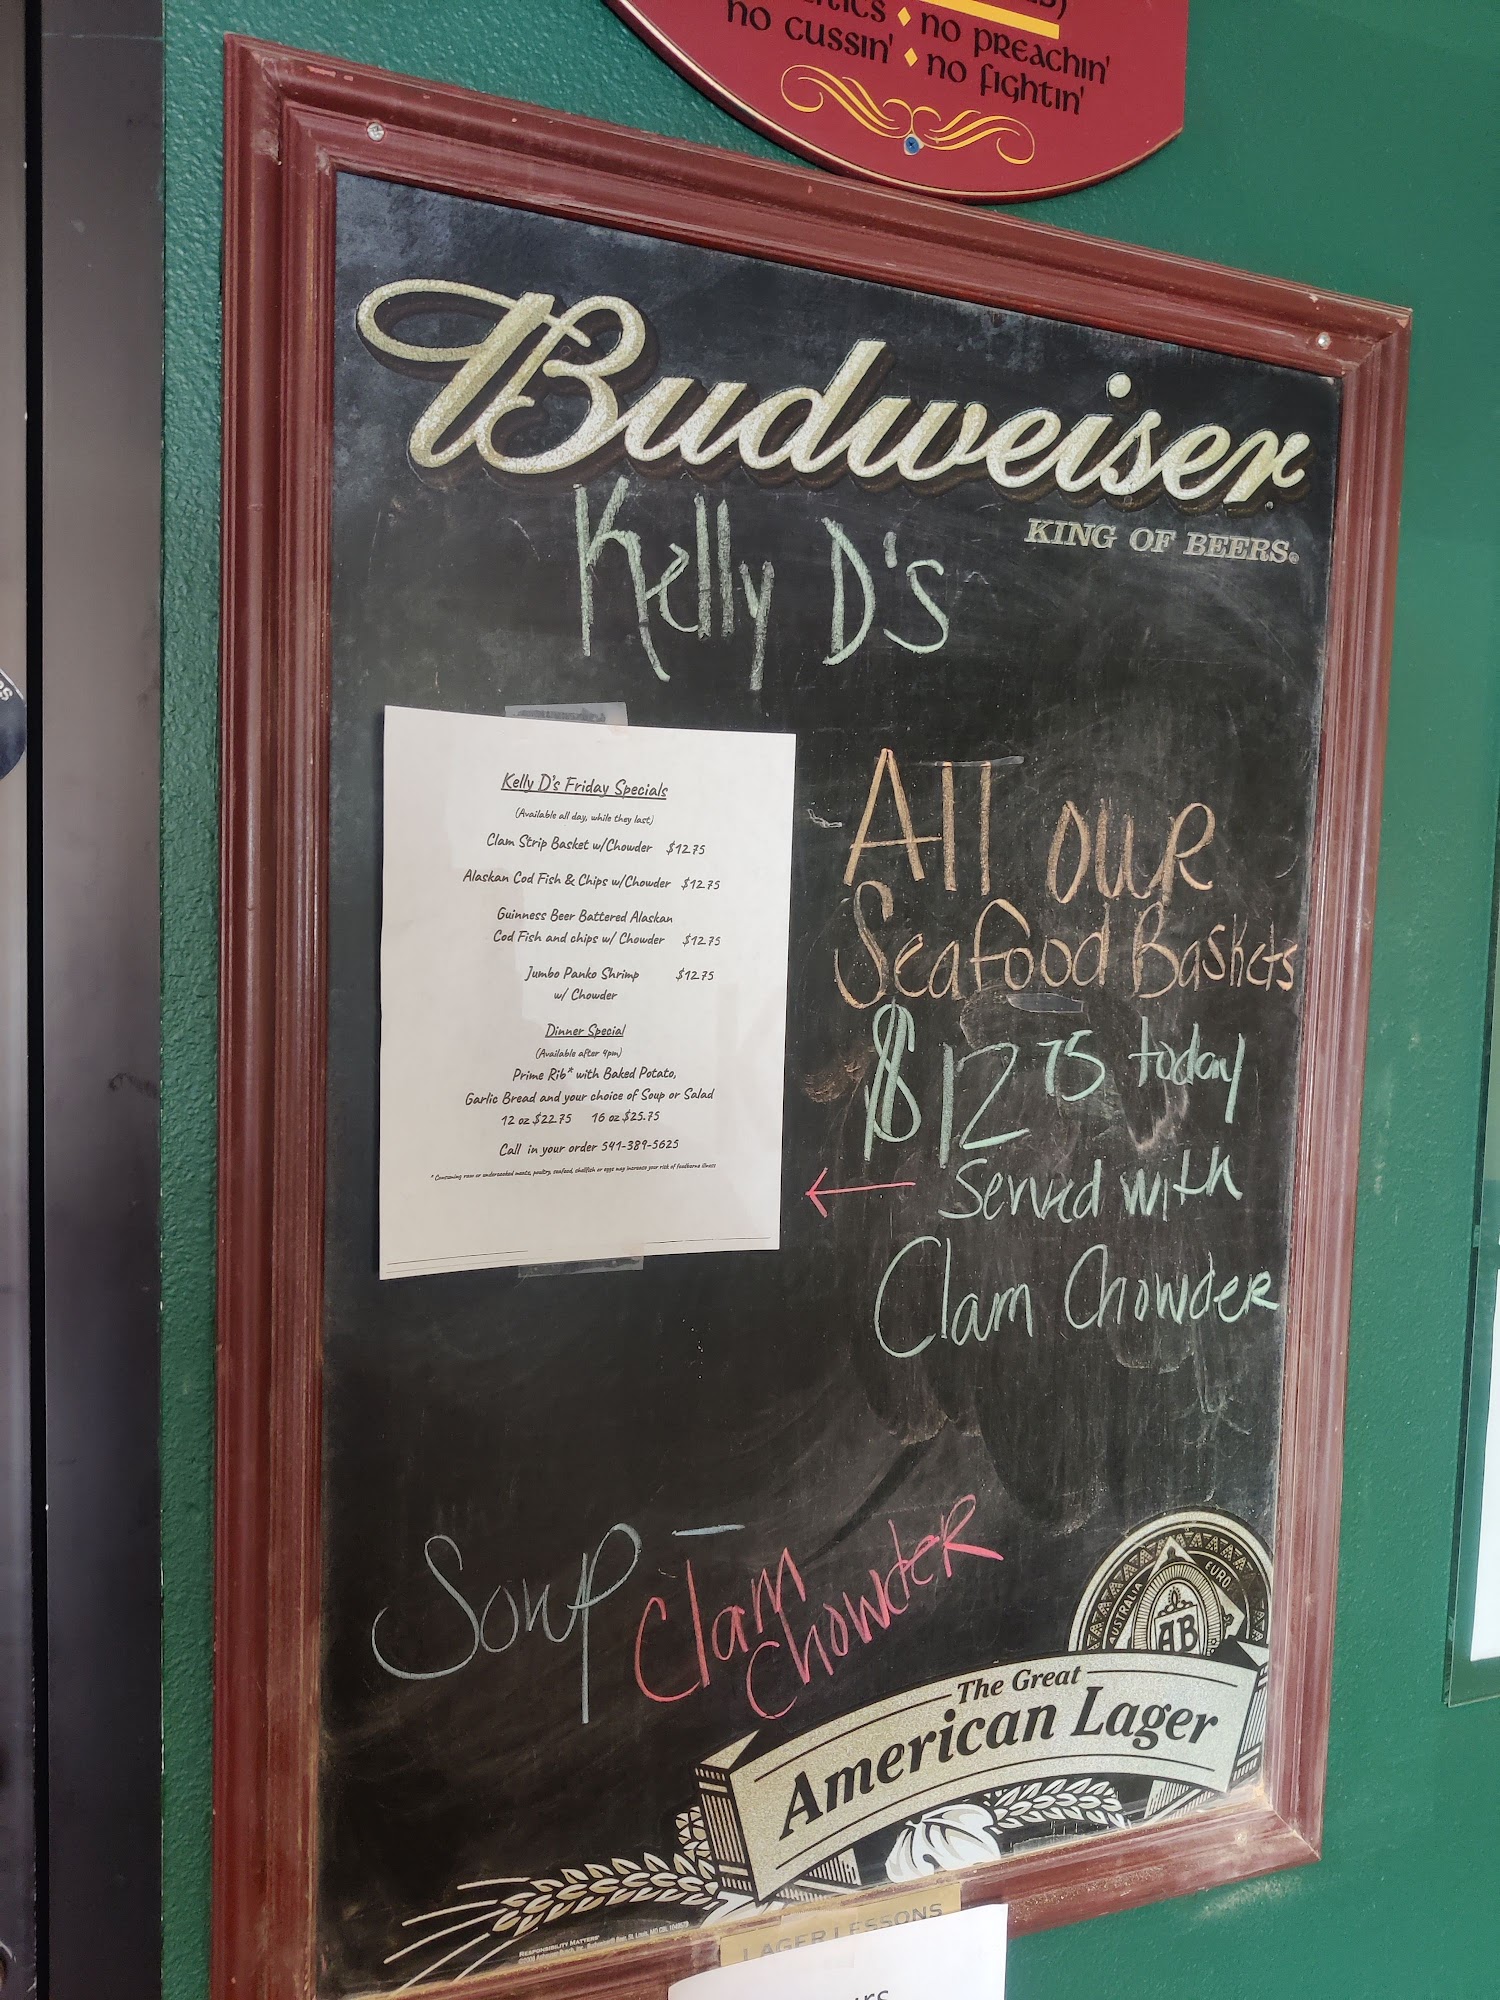 no preachin'
no cussin' ♦ no fightin'
Budweiser
KING OF BEERS®
Kelly D's
Kelly D's Friday Specials
(Available all day, while they last)
Clam Strip Basket w/Chowder $12.75
Alaskan Cod Fish & Chips w/Chowder $12.75
Guinness Beer Battered Alaskan
Cod Fish and chips w/ Chowder $12.75
Jumbo Panko Shrimp $12.75
w/ Chowder
Dinner Special
(Available after 4pm)
Prime Rib* with Baked Potato,
Garlic Bread and your choice of Soup or Salad
12 oz $22.75 16 oz $25.75
Call in your order 541-389-5625
* Consuming raw or undercooked meats, poultry, seafood, shellfish or eggs may increase your risk of foodborne illness
All our
Seafood Baskets
$12 75 today
← Served with
Clam Chowder
Soup - Clam
Chowder
AUSTRALIA
EURO
AB
The Great
American Lager
RESPONSIBILITY MATTERS®
LAGER LESSONS